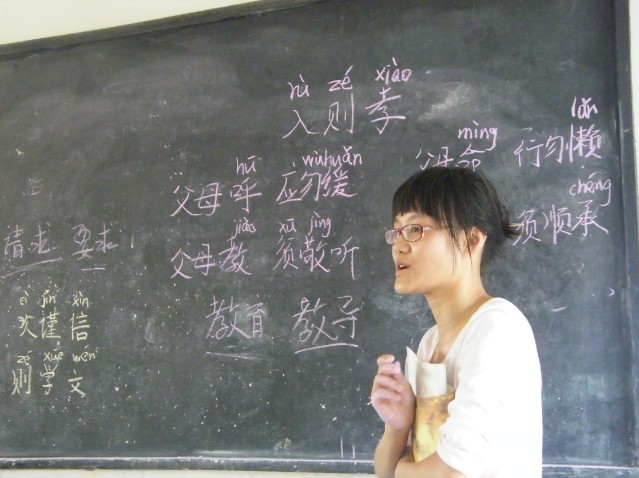 rù zé xiào
入则孝
hū wùhuǎn mìng lǎn
父母呼 应勿缓 父母命 行勿懒
jiào xū jìng chéng
父母教 须敬听 须顺承
请求 要求
教育 教导
cì jǐn xìn
次谨信
zé xué wén
则学文